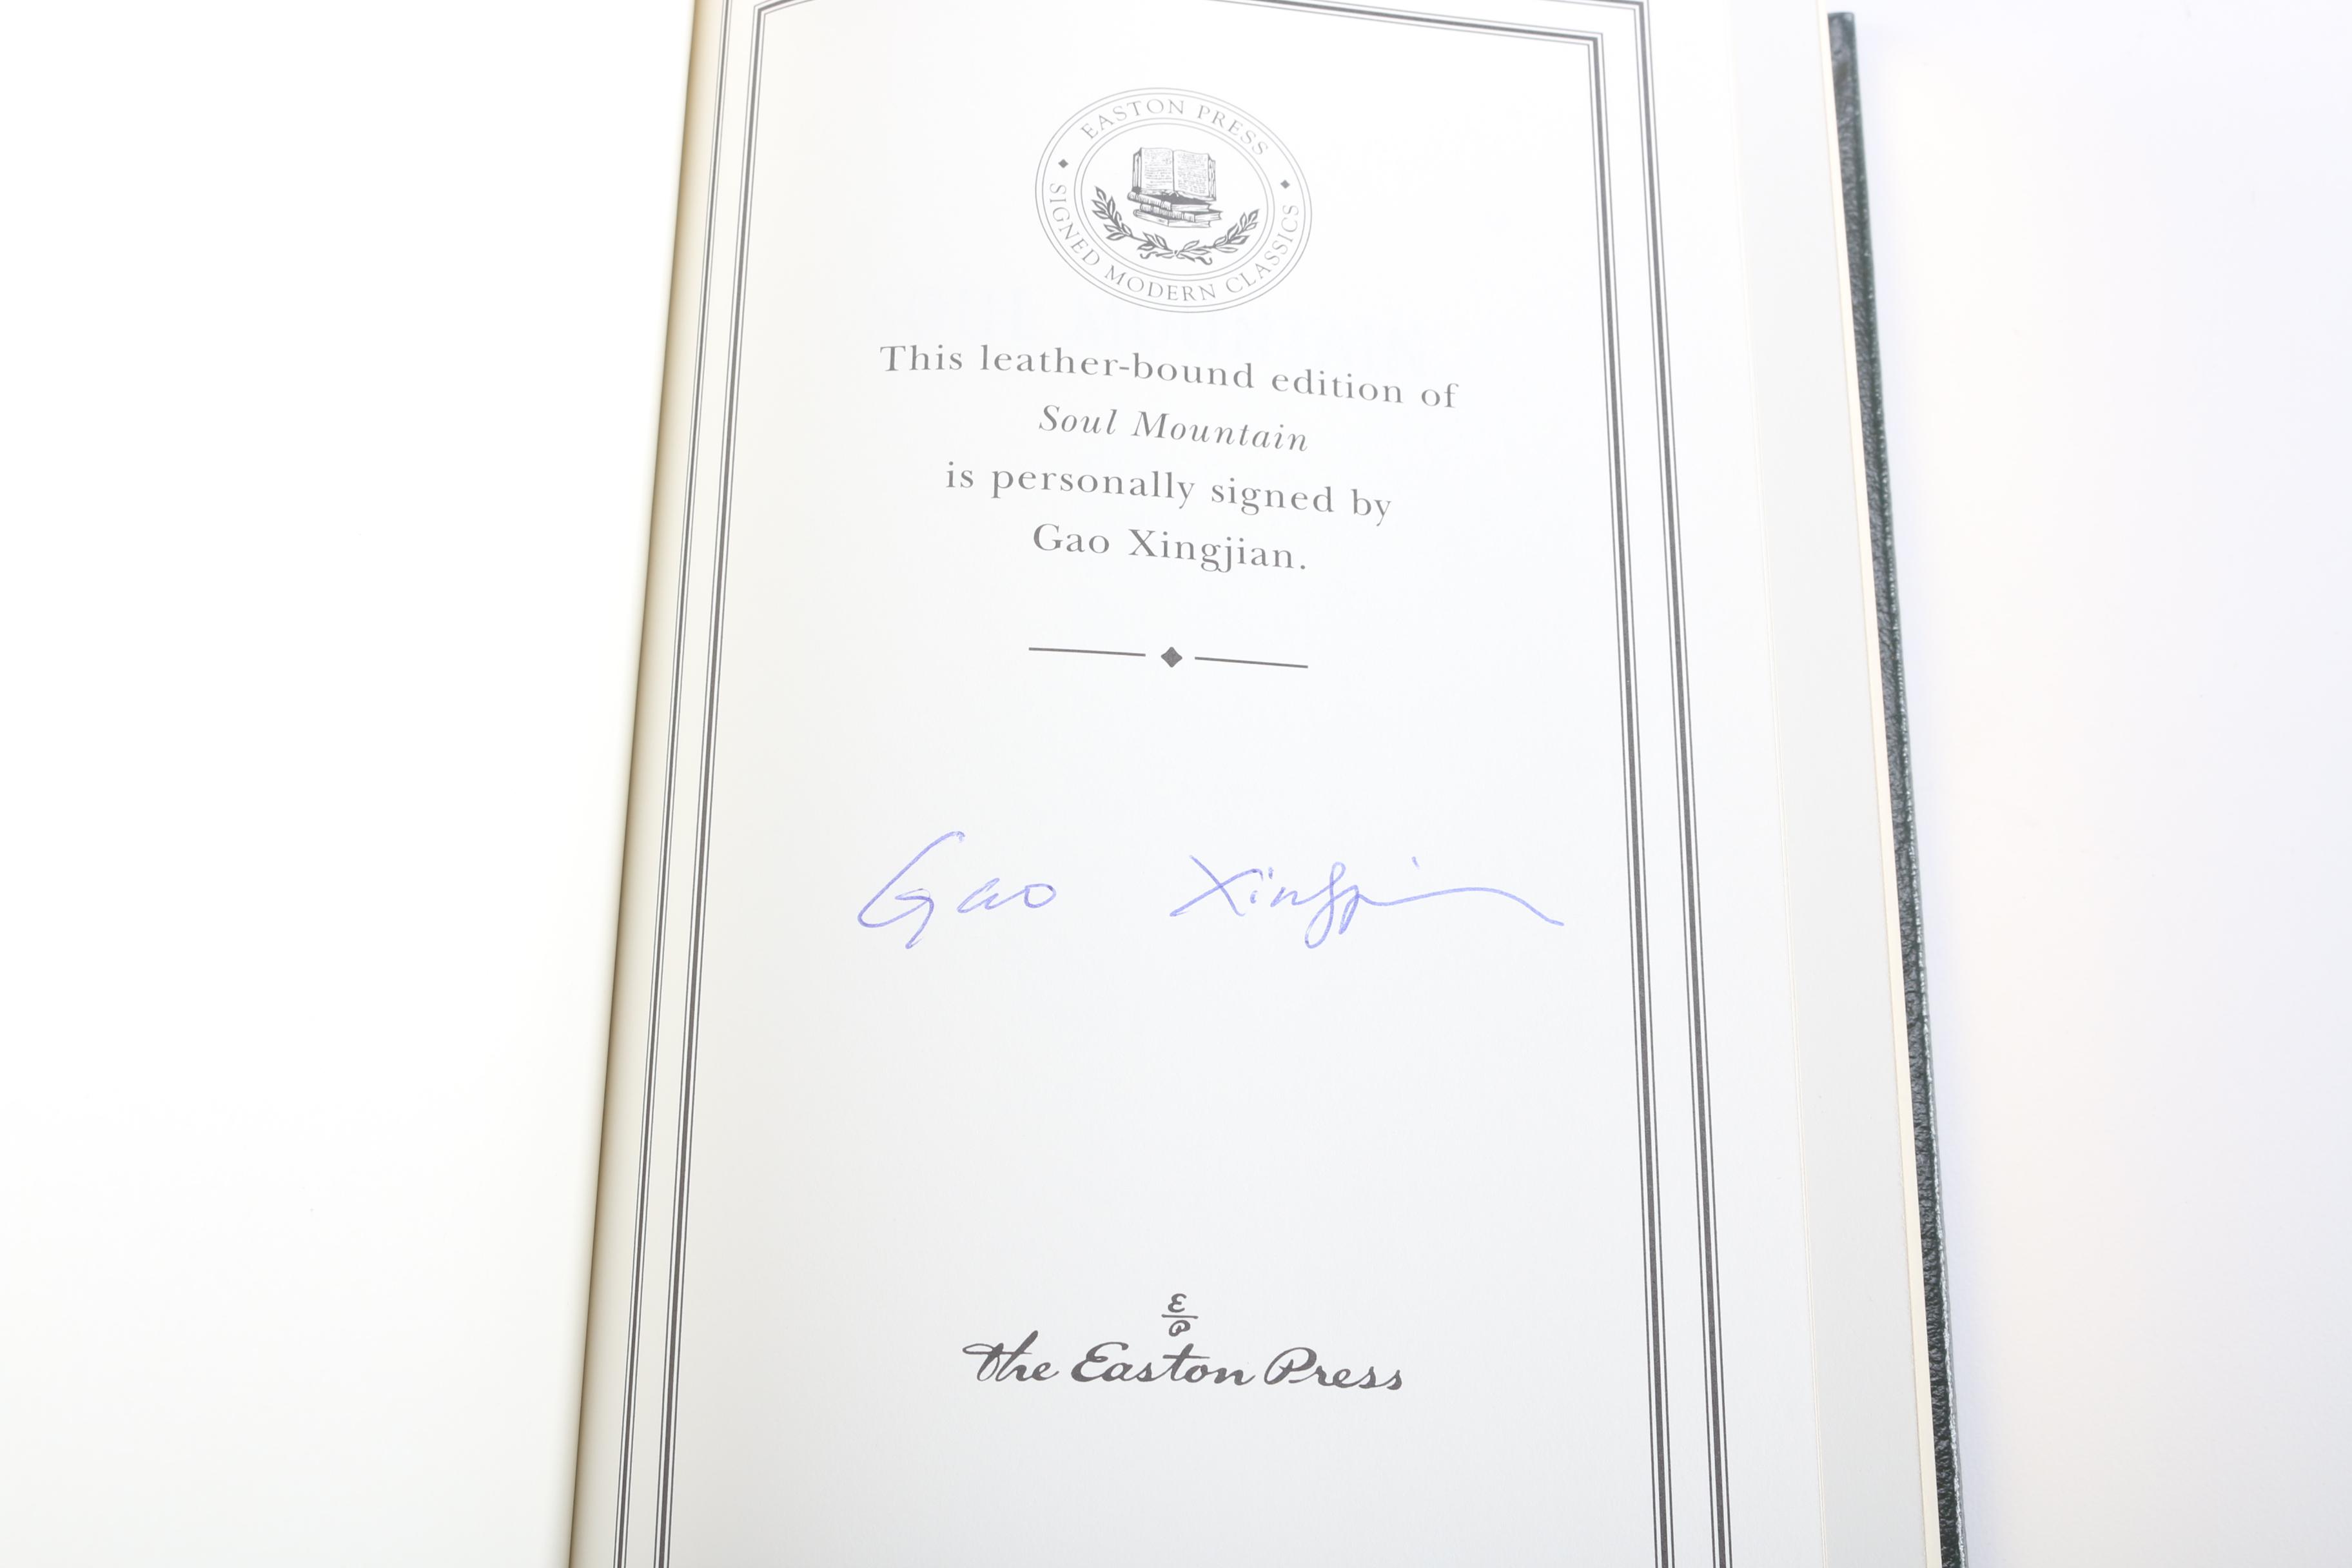 EASTON PRESS
SIGNED MODERN CLASSICS
This leather-bound edition of
Soul Mountain
is personally signed by
Gao Xingjian.
Gao Xingjian
E
P
The Easton Press